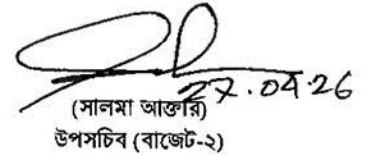 27.04.26
(সালমা আক্তার)
উপসচিব (বাজেট-২)